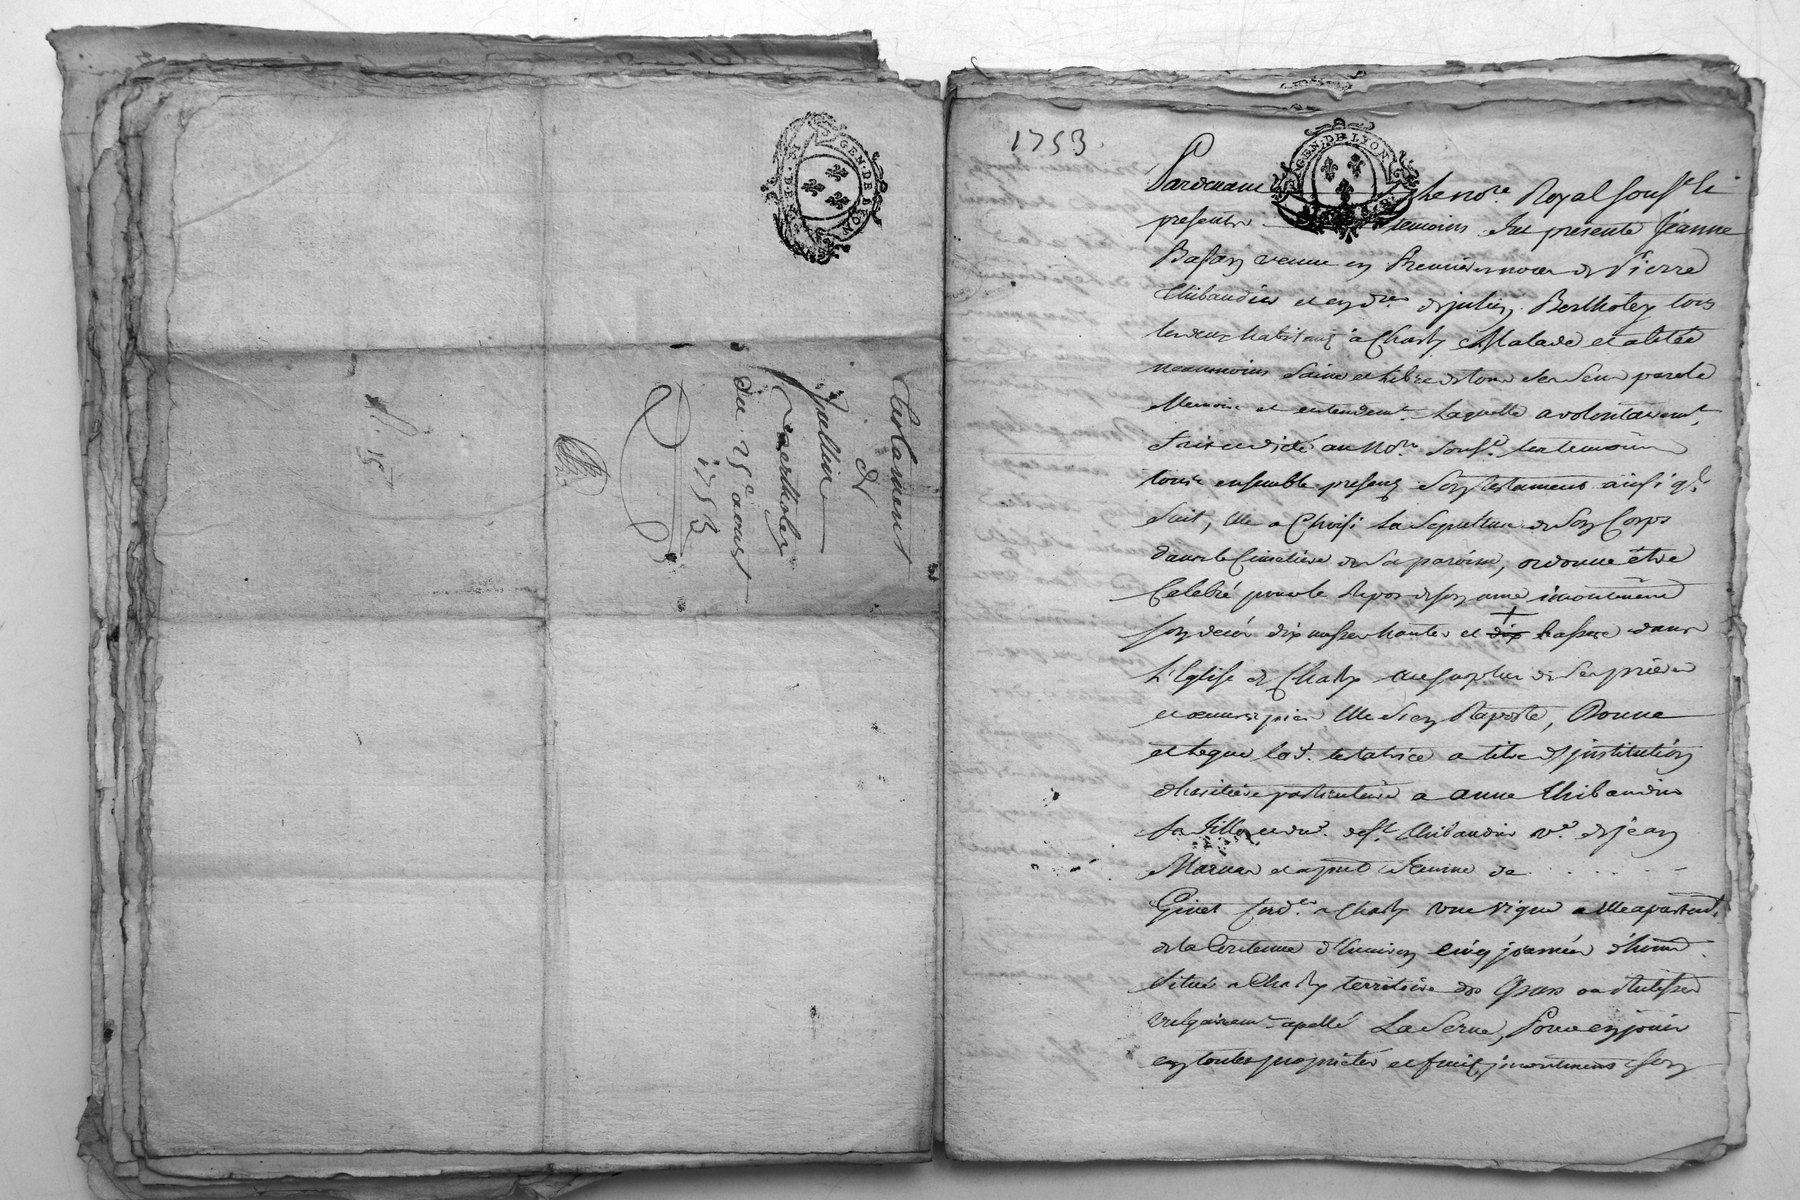 GEN. DE LYON
Testament
de
Jullien
Bertholey
du 25e aoust
1753
1753
GEN. DE LYON
Pardevant le nore. Royal soussé. &
presents temoins fut presente Jeanne
Bassan veuve en premieres noces de Pierre
Thibaudier et en dres de julien Bertholey tous
les deux habitant à Charly Malade et alitée
neanmoins saine et libre de tous ses sens parole
Memoire et entendemt. Laquelle a volontairemt.
fait et dicté au Nore. soussé. les temoins
tous ensemble presens son testament ainsi q.
suit, elle a Choisi la sepulture de son Corps
dans le Cimetière de sa paroisse, ordonne être
Celebré pour le Repos de son ame
son decès dix messes hautes et dix basses dans
L'Eglise de Charly au surplus de ses prières
et œuvres pies Elle s'en Raporte, Donne
et legue lad. testatrice a titre d'institution
particulière a anne thibaudier
sa fille et dud. deft. thibaudier ve. de jean
Marnas et a present femme de . . . . .
Ginet Cord.er a Charly une vigne a elle apartent.
de la Contenue d'Environ cinq journées d'homme
situé a Charly territoire des ou
vulgairemt. apellé La Serve, Pour en jouir
en toutes proprietés et fruits son